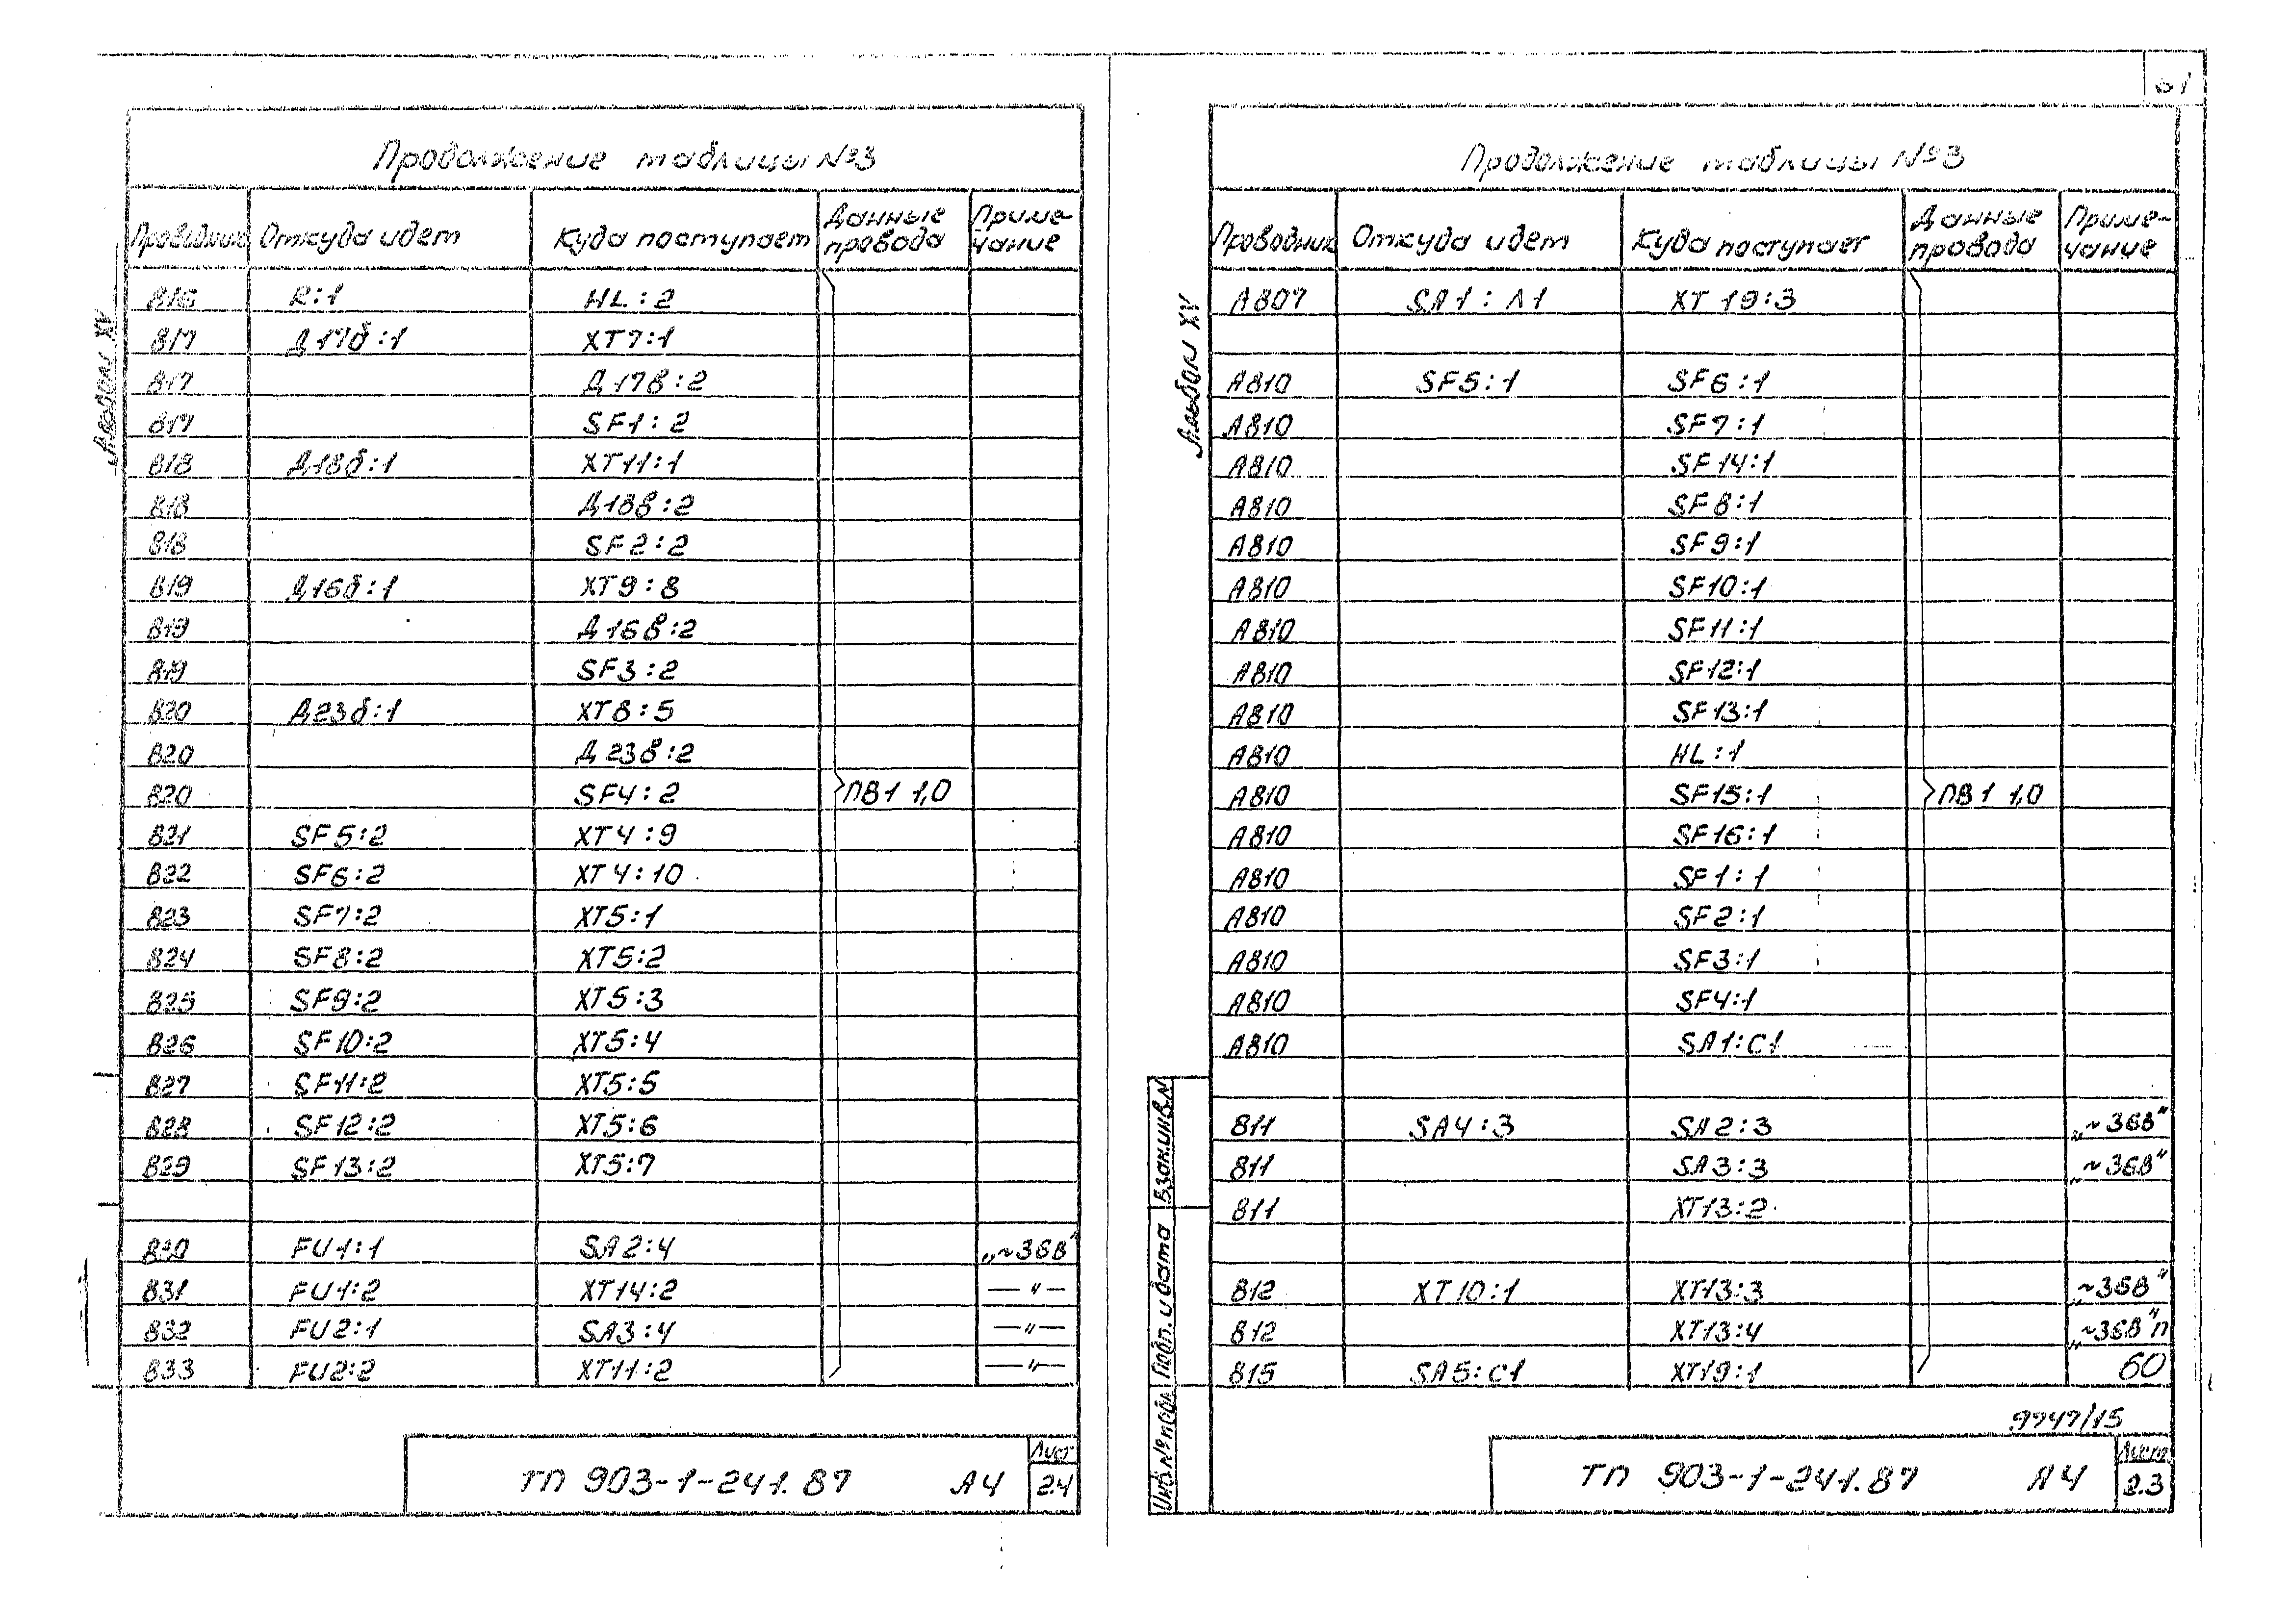 61
Альбом XV
Продолжение таблицы №3
Проводник Откуда идет Куда поступает Данные провода Приме-чание
816 R:1 HL:2
817 Д17б:1 XT7:1
817 Д17в:2
817 SF1:2
818 Д18б:1 XT11:1
818 Д18в:2
818 SF2:2
819 Д16б:1 XT9:8
819 Д16в:2
819 SF3:2
820 Д23б:1 XT8:5
820 Д23в:2
820 SF4:2 ПВ1 1,0
821 SF5:2 XT4:9
822 SF6:2 XT4:10
823 SF7:2 XT5:1
824 SF8:2 XT5:2
825 SF9:2 XT5:3
826 SF10:2 XT5:4
827 SF11:2 XT5:5
828 SF12:2 XT5:6
829 SF13:2 XT5:7
830 FU1:1 SA2:4 „~36В"
831 FU1:2 XT14:2 —"—
832 FU2:1 SA3:4 —"—
833 FU2:2 XT11:2 —"—
ТП 903-1-241.87 А4 Лист 24
Альбом XV
Продолжение таблицы №3
Проводник Откуда идет Куда поступает Данные провода Приме-чание
А807 SA1:Л1 XT19:3
А810 SF5:1 SF6:1
А810 SF7:1
А810 SF14:1
А810 SF8:1
А810 SF9:1
А810 SF10:1
А810 SF11:1
А810 SF12:1
А810 SF13:1
А810 HL:1
А810 SF15:1 ПВ1 1,0
А810 SF16:1
А810 SF1:1
А810 SF2:1
А810 SF3:1
А810 SF4:1
А810 SA1:C1
811 SA4:3 SA2:3 „~36В"
811 SA3:3 „~36В"
811 XT13:2
812 XT10:1 XT13:3 „~36В"
812 XT13:4 „~36В"п
815 SA5:C1 XT19:1 60
9747/15
ТП 903-1-241.87 А4 Лист 23
Инв.№ подл. Подп. и дата Взам.инв.N